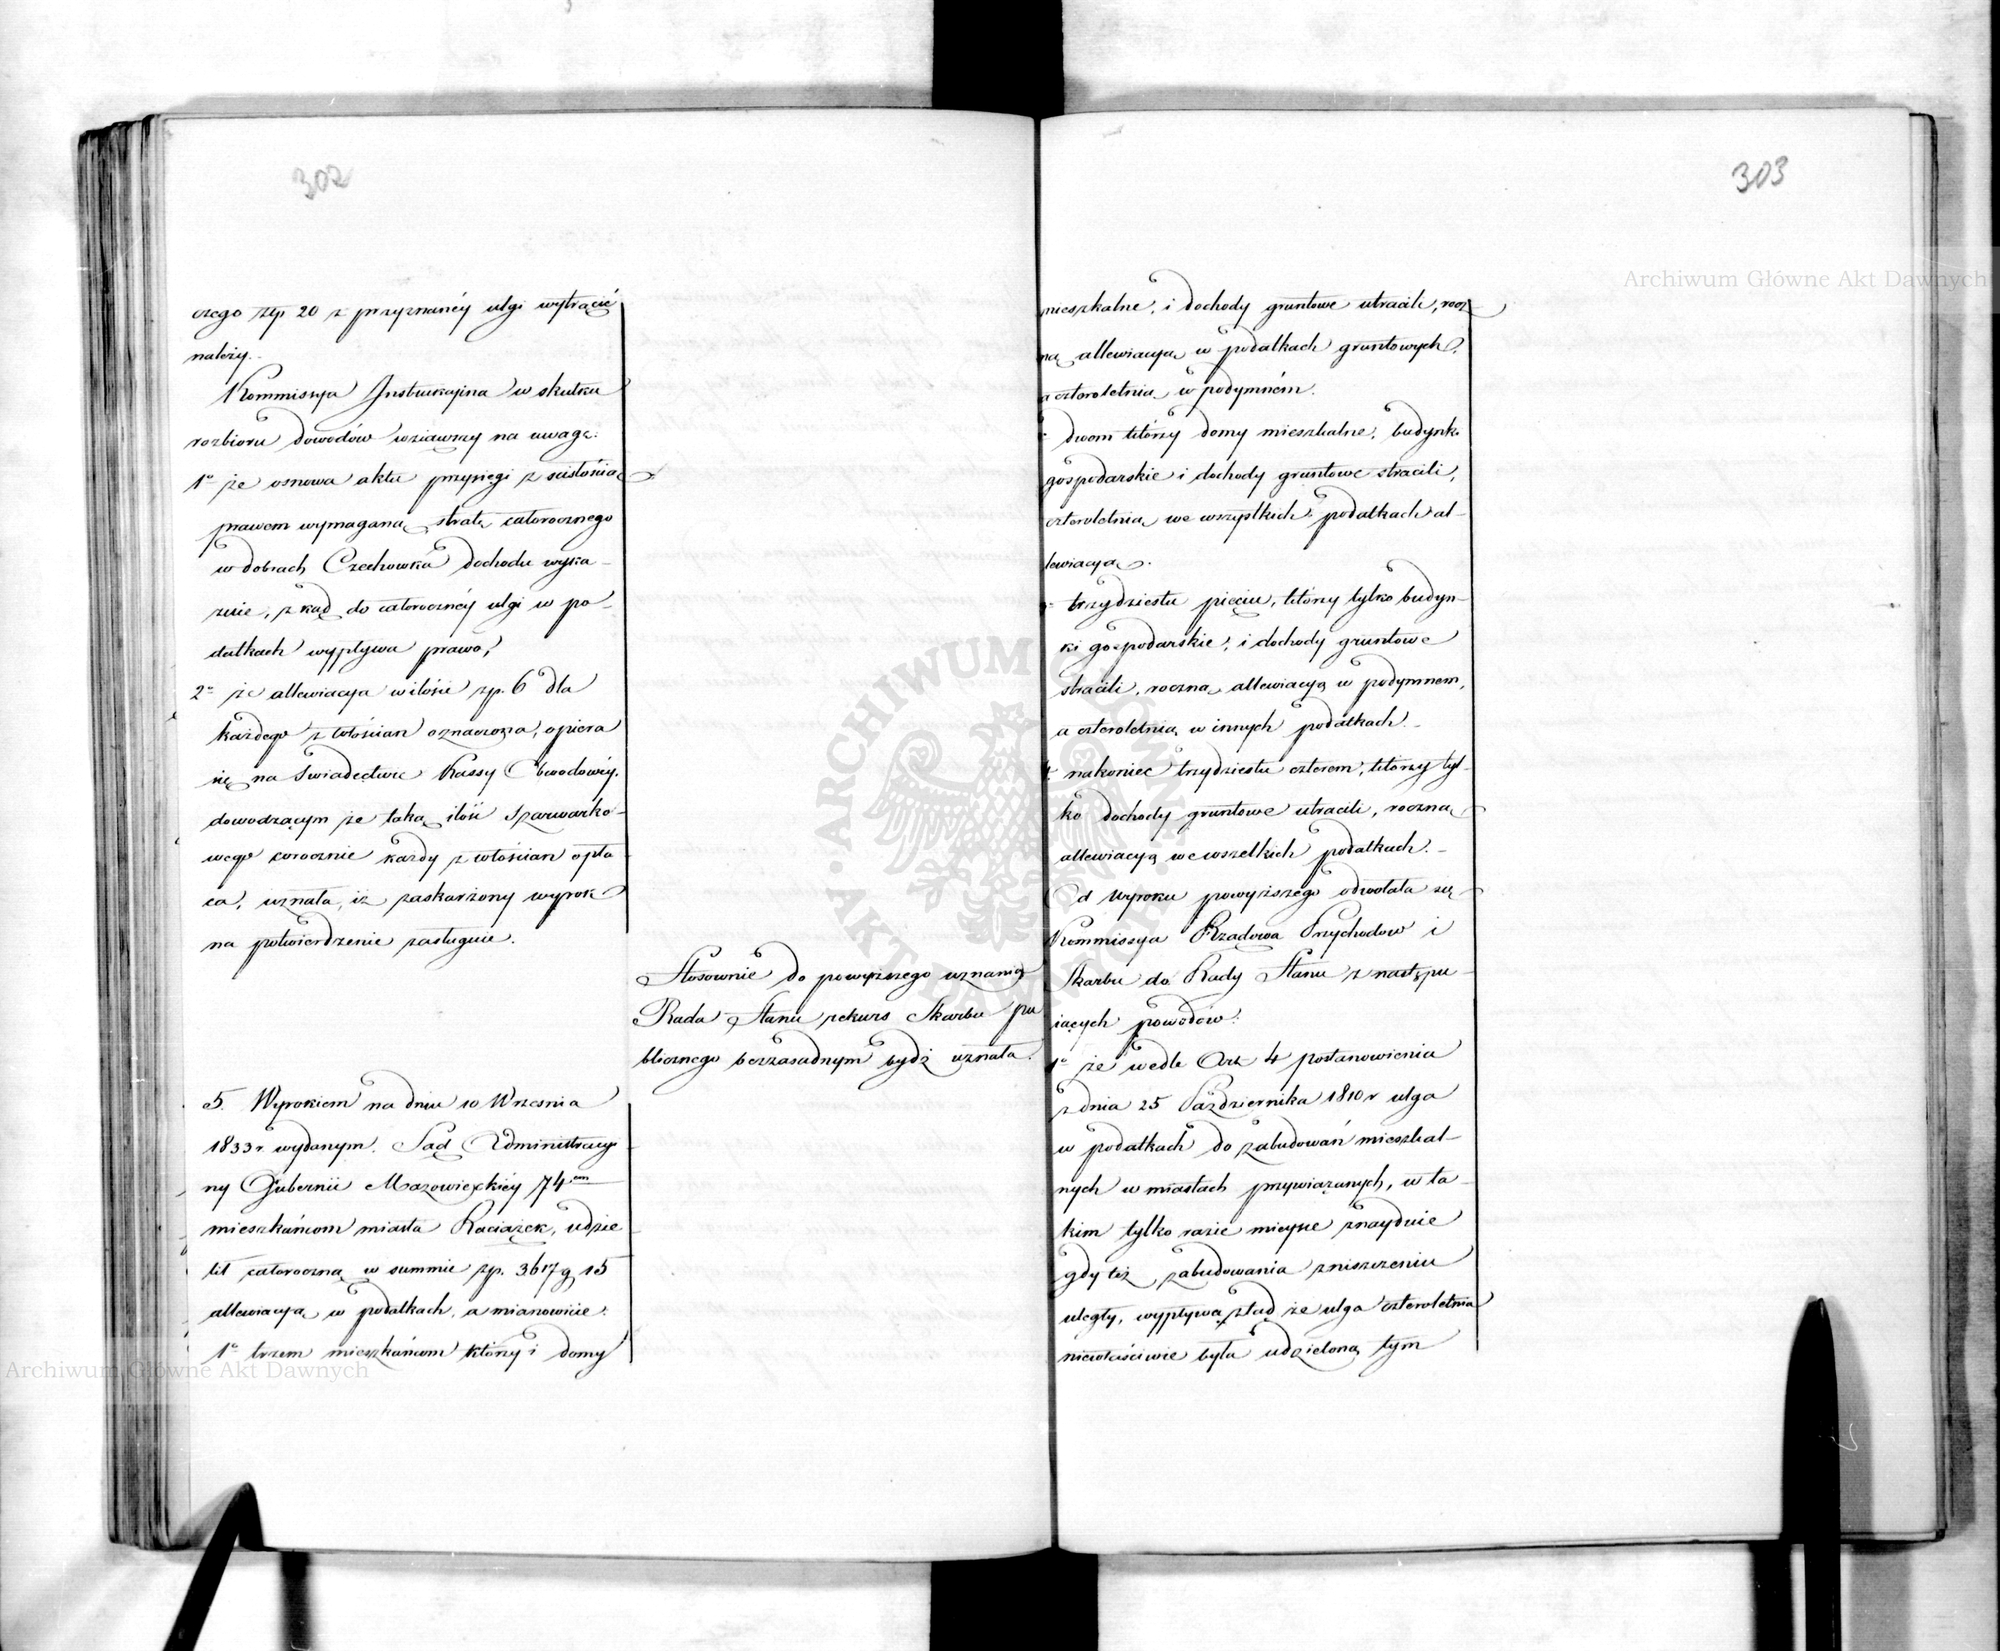 302
czego złp 20 z przyznanéy ulgi wytrącić
należy.
Kommissya Instrukcyina w skutku
rozbioru dowodów wziąwszy na uwagę:
1o że osnowa aktu przysięgi z scisłością
prawem wymaganą stratę całorocznego
w dobrach Czechowka dochodu wyka-
zuie, z kąd do całorocznéy ulgi w po-
datkach wypływa prawo,
2o że allewiacya w ilości zp. 6 dla
każdego z włościan oznaczona, opiera
się na świadectwie Kassy Obwodowéy,
dowodzącym że taką ilość Szarwarko-
wego corocznie każdy z włościan opła-
ca, uznała, iż zaskarżony wyrok
na potwierdzenie zasługuie.
Stosownie do powyższego uznania
Rada Stanu rekurs Skarbu pu
blicznego bezzasadnym bydź uznała.
5. Wyrokiem na dniu 10 Września
1833 r. wydanym. Sąd Administracyi
ny Gubernii Mazowieckiéy 74em
mieszkańcom miasta Raciążek, udzie
lił całoroczną w summie zp. 3617 g 15
allewiacyą w podatkach, a mianowicie:
1o trzem mieszkańcom którzy i domy
303
mieszkalne, i dochody gruntowe utracili, rocz
ną allewiacyą w podatkach gruntowych,
a czteroletnią w podymném.
dwom którzy domy mieszkalne, budynki
gospodarskie i dochody gruntowe stracili,
czteroletnią we wszystkich podatkach al-
lewiacyą.
trzydziestu pięciu, którzy tylko budyn-
ki gospodarskie, i dochody gruntowe
stracili, roczną allewiacyą w podymnem,
a czteroletnią w innych podatkach.
4. nakoniec trzydziestu czterem, którzy tyl-
ko dochody gruntowe utracili, roczną
allewiacyą we wszelkich podatkach.
Od wyroku powyższego odwołała się
Kommissya Rządowa Przychodow i
Skarbu do Rady Stanu z nastepu
iących powodów:
1o że wedle Art 4 postanowienia
z dnia 25 Października 1810 r ulga
w podatkach do zabudowań mieszkal-
nych w miastach przywiązanych, w ta-
kim tylko razie mieysce znayduie
gdy też zabudowania zniszczeniu
uległy, wypływa ztąd że ulga czteroletnia
niewłaściwie była udzieloną tym
Archiwum Główne Akt Dawnych
Archiwum Główne Akt Dawnych
ARCHIWUM GŁÓWNE AKT DAWNYCH